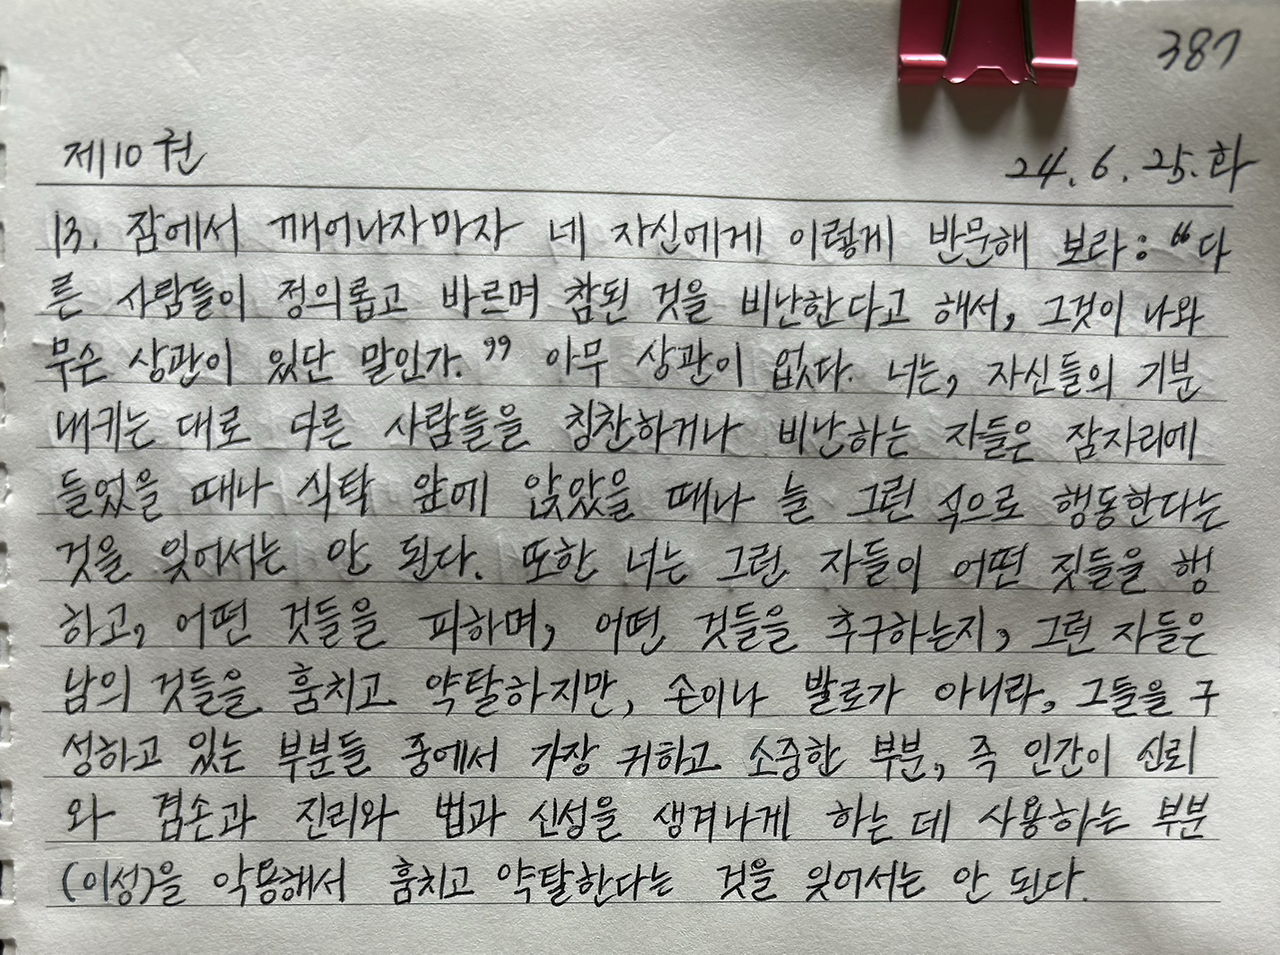 387
제10권
24. 6. 25. 화
13. 잠에서 깨어나자마자 네 자신에게 이렇게 반문해 보라: “다
른 사람들이 정의롭고 바르며 참된 것을 비난한다고 해서, 그것이 나와
무슨 상관이 있단 말인가.” 아무 상관이 없다. 너는, 자신들의 기분
내키는 대로 다른 사람들을 칭찬하거나 비난하는 자들은 잠자리에
들었을 때나 식탁 앞에 앉았을 때나 늘 그런 식으로 행동한다는
것을 잊어서는 안 된다. 또한 너는 그런 자들이 어떤 짓들을 행
하고, 어떤 것들을 피하며, 어떤 것들을 추구하는지, 그런 자들은
남의 것들을 훔치고 약탈하지만, 손이나 발로가 아니라, 그들을 구
성하고 있는 부분들 중에서 가장 귀하고 소중한 부분, 즉 인간이 신뢰
와 겸손과 진리와 법과 신성을 생겨나게 하는 데 사용하는 부분
(이성)을 악용해서 훔치고 약탈한다는 것을 잊어서는 안 된다.